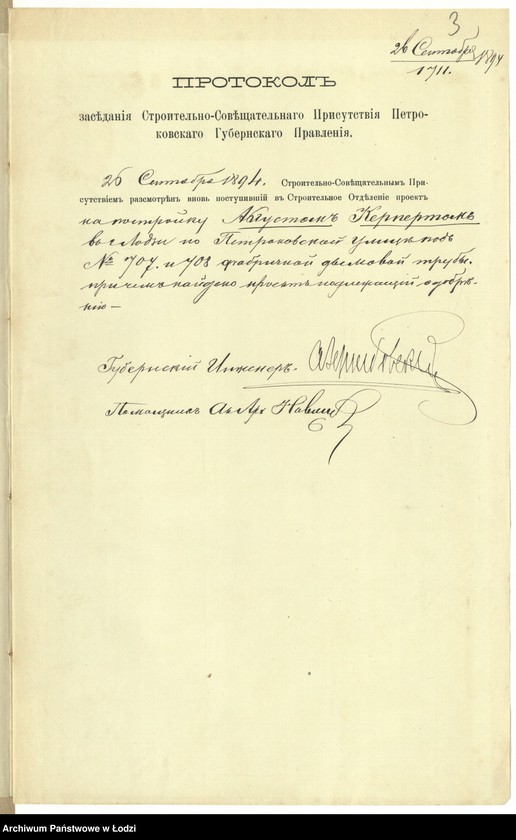 3
26 Сентября 1894
1711.
ПРОТОКОЛЪ
засѣданія Строительно-Совѣщательнаго Присутствія Петро-
ковскаго Губернскаго Правленія.
26 Сентября 1894. Строительно-Совѣщательнымъ При-
сутствіемъ разсмотрѣнъ вновь поступившій въ Строительное Отдѣленіе проектъ
на постройку Августомъ Керпертомъ
въ г. Лодзи по Петроковской улицѣ подъ
№ 707. и 708 фабричной дымовой трубы.
причемъ найдено проектъ подлежащій одобрѣ-
нію —
Губернскій Инженеръ.
Помощникъ
Archiwum Państwowe w Łodzi